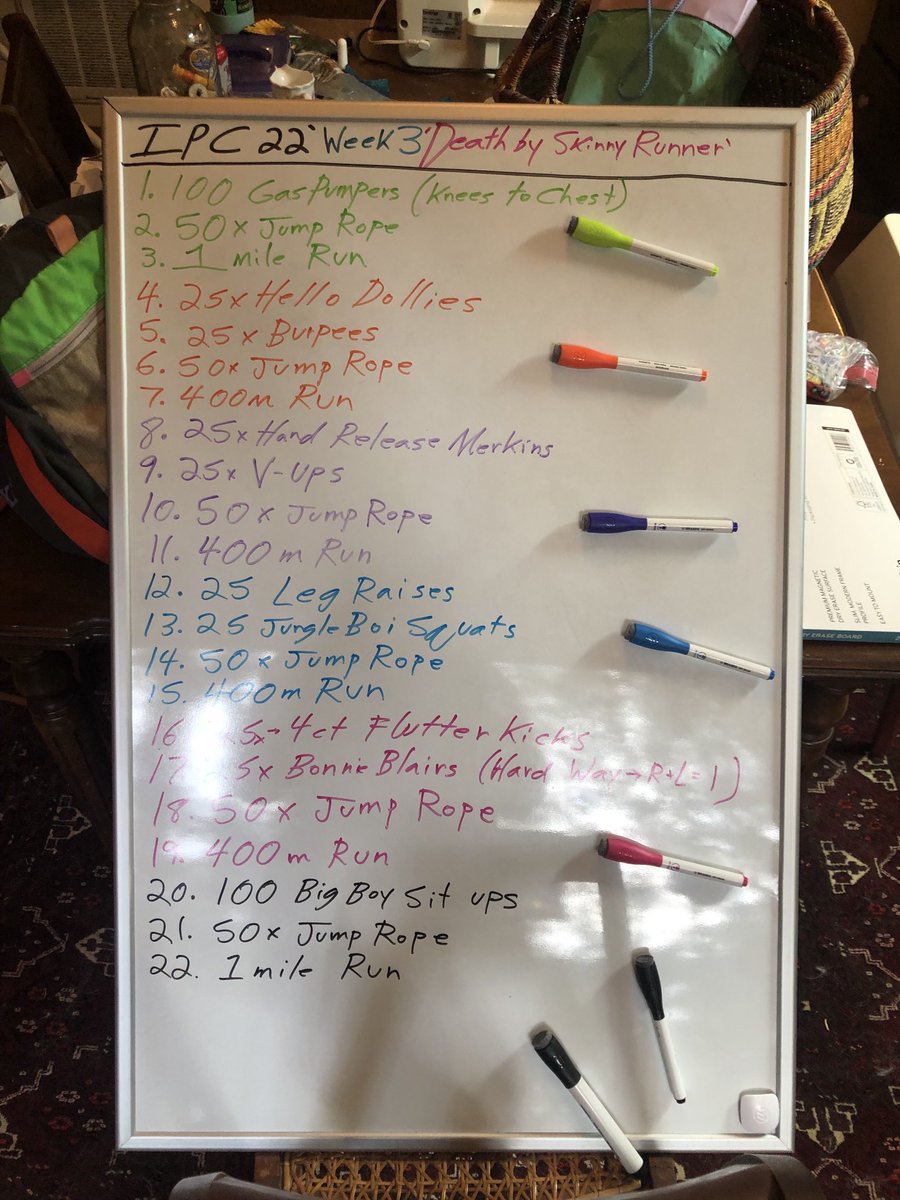 IPC 22' Week 3 'Death by Skinny Runner'
1. 100 GasPumpers (Knees to Chest)
2. 50x Jump Rope
3. 1 mile Run
4. 25x Hello Dollies
5. 25x Burpees
6. 50x Jump Rope
7. 400m Run
8. 25x Hand Release Merkins
9. 25x V-Ups
10. 50x Jump Rope
11. 400m Run
12. 25 Leg Raises
13. 25 JungleBoi Squats
14. 50x Jump Rope
15. 400m Run
16 4ct Flutter Kicks
17. Bonnie Blairs (Hard Way→R+L=1)
18. 50x Jump Rope
19. 400m Run
20. 100 Big Boy Sit ups
21. 50x Jump Rope
22. 1 mile Run
PREMIUM MAGNETIC
DRY ERASE SURFACE
SLIM, MODERN FRAME
PROFILE
EASY TO MOUNT
ERASE BOARD